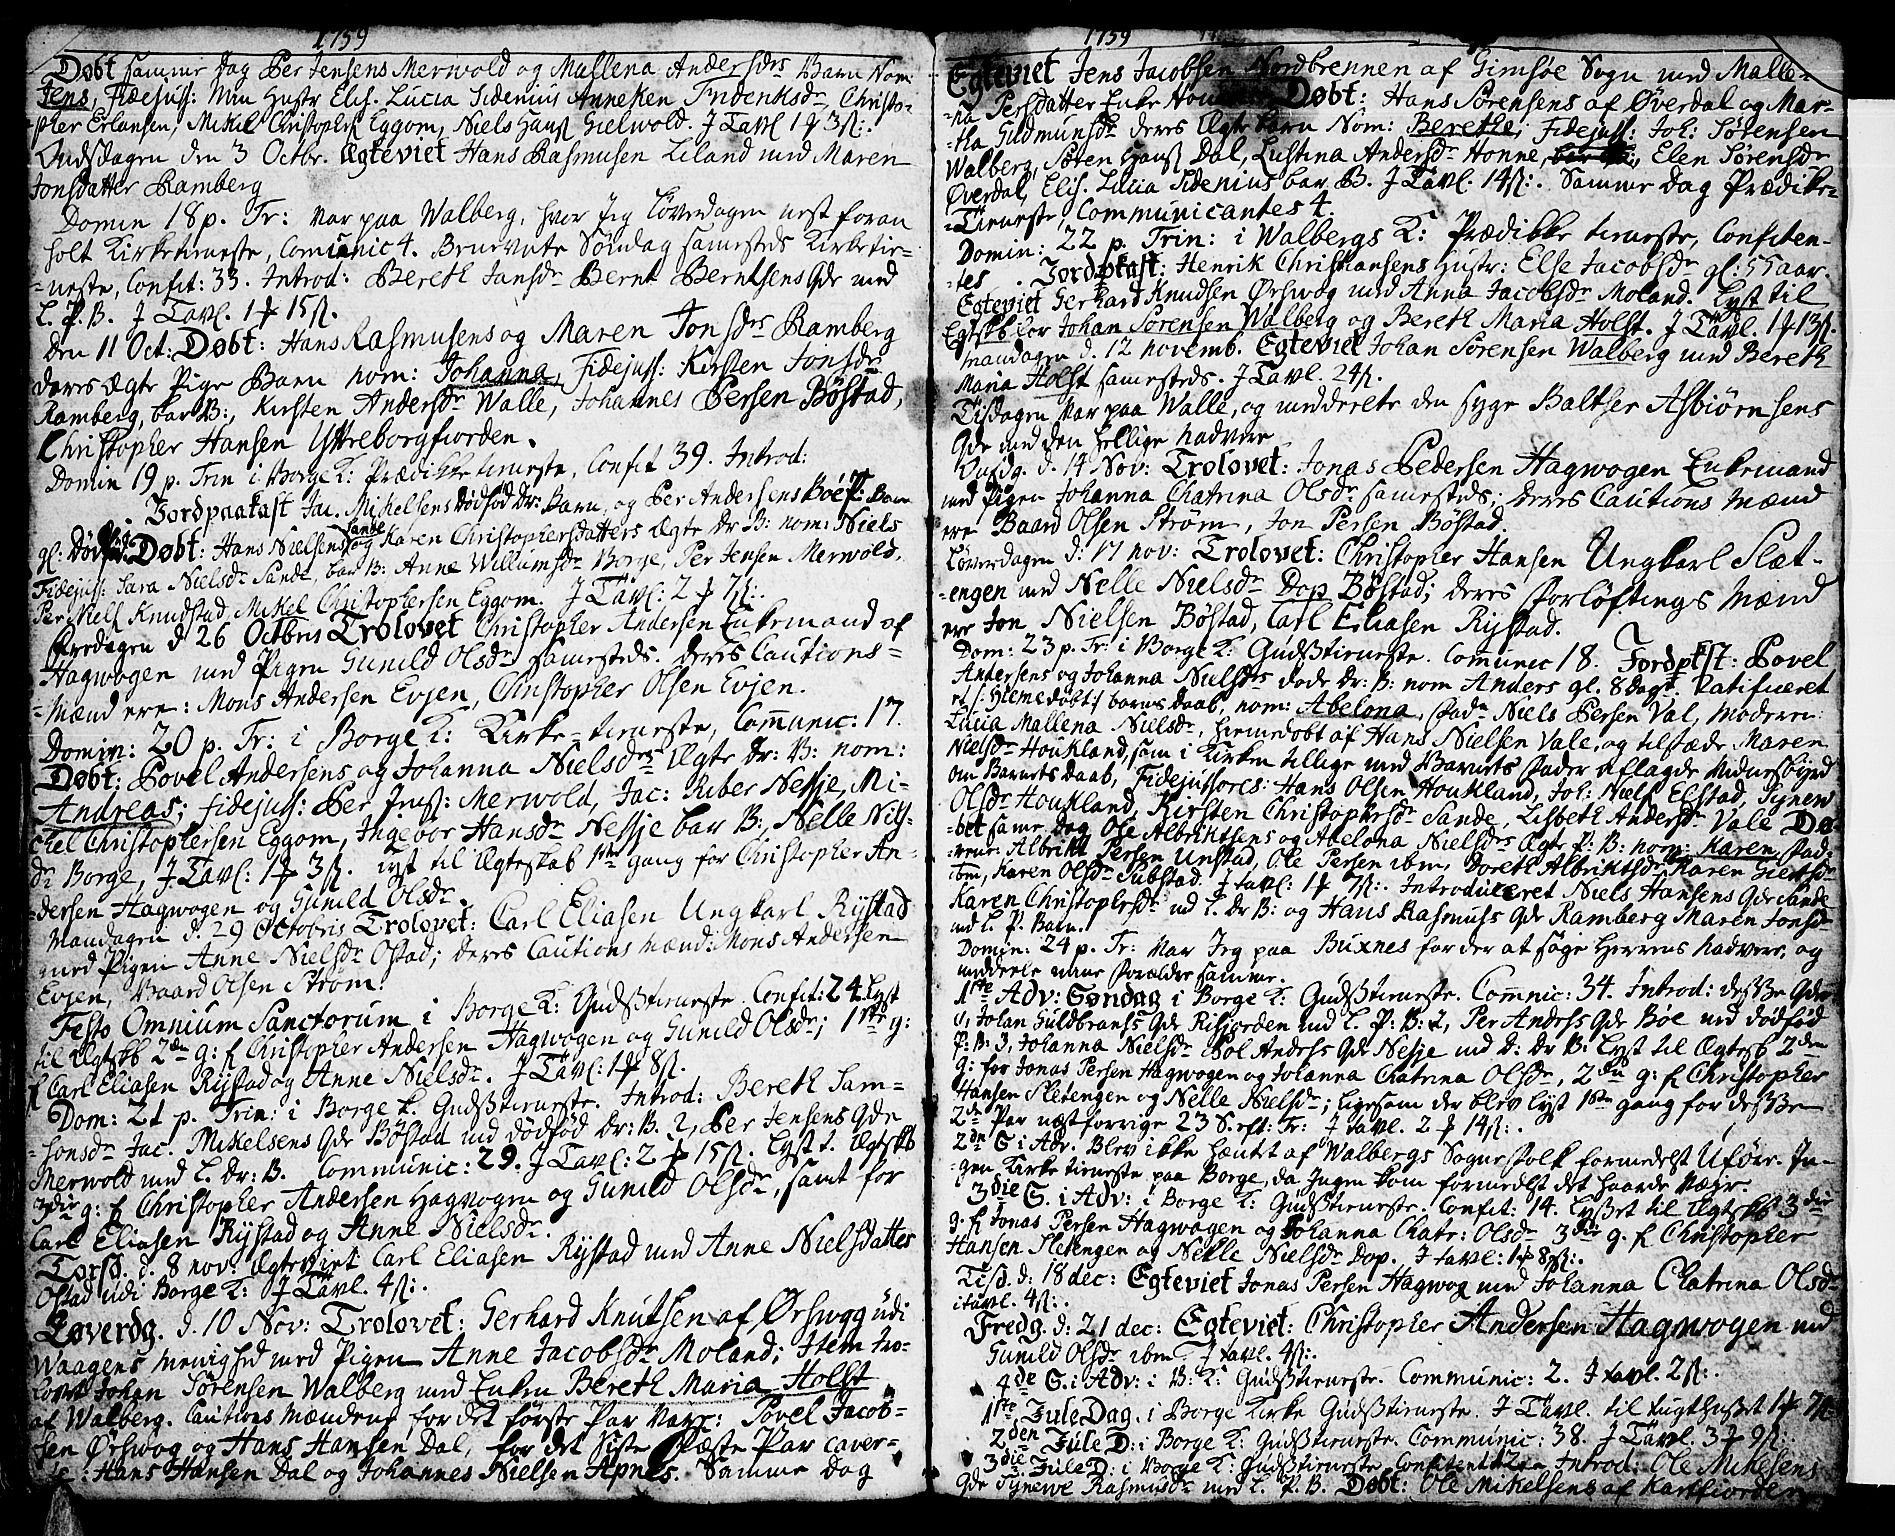 1759
Døbt samme dag Per Jensens Merwold og Mallena Andersdrs Barn Nom:
Jens, Fidejuss: Min Hustr Elis. Lucia Sidenius Anneken Fridenksdr, Christo-
pher Erlansen, Mikel Christophers Eggom, Niels Hans Gielwold. J Tavl 1 3ß:.
Ondsdagen den 3 Octbr. Ægteviet Hans Rasmusen Liland med Maren
Jonsdatter Ramberg
Domin 18 p. Tr: Var paa Walberg, hvor Jeg Løverdagen nest foran
holt Kirketieneste, Comunic 4. Benevnte Søndag samesteds Kirketie-
=neste, Confit: 33. Introd: Bereth Jansdr Bernt Berntsens Qde med
L. P. B. J Tavl. 1 15ß.
den 11 Oct: Døbt: Hans Rasmusens og Maren Jonsdrs Ramberg
deres Ægte Pige Barn nom: Johanna, Fidejuss: Kirsten Jonsdr
Ramberg, bar B:, Kirsten Andersdr Walle, Johannes Persen Bøstad,
Christopher Hansen Yttreborgfiorden.
Domin 19 p. Trin i Borge K: Prædikketieneste, Confit 39. Introd:
Jordpaakast Jac. Mikelsens dødfød Dr: Barn, og Per Andersens Böe P: Barn
gl: dødfød. Døbt: Hans Nielsens Sande og Karen Christophersdatters Ægte Dr B: nom: Niels
Fidejuss: Sara Nielsdr Sande, bar B: Anne Willumsdr Borge, Per Jensen Merwold,
Per Niels Knudstad, Mikel Christophersen Eggom. J Tavl: 2 7ß:.
Fredagen d 26 Octbris Trolovet Christopher Andersen Enkemand af
Hagwogen med Pigen Gunild Olsdr samesteds. deres Cautions-
=Mænd ere: Mons Andersen Evjen, Christopher Olsen Evjen.
Domin: 20 p. Tr: i Borge K: Kirke-tieneste, Comunic: 17.
Døbt: Povel Andersens og Johanna Nielsdrs Ægte Dr: B: nom:
Andreas; fidejuss: Per Jens: Merwold, Jac: Riber Nesje, Mi-
chel Christophersen Eggom, Ingebor Hansdr Nessje bar B:, Nelle Nils-
dr Borge, J Tavl: 1 3ß. lyst til Ægteskab 1te gang for Christopher An-
dersen Hagwogen og Gunild Olsdr.
Mandagen d. 29 Octobris Trolovet: Carl Eliasen Ungkarl Rystad
med Pigen Anne Nielsdr Ostad; deres Cautions Mænd: Mons Andersen
Evjen, Baard Olsen Strøm.
Festo Omnium Sanctorum i Borge K: Gudßtieneste. Confit: 24. Lyst
til Ægteskb 2den g: f Christopher Andersen Hagwogen og Gunild Olsdr; 1ste g:
f Carl Eliasen Rystad og Anne Nielsdr. J Tavl: 1 8ß.
Dom: 21 p. Trin: i Borge k. Gudßtieneste. Introd: Bereth Sam=
=sonsdr Jac. Mikelsens Qde Bøstad md dødfød Dr: B. 2, Per Jensens Qde
Merwold med L. Dr: B. Communic: 29. J Tavl: 2 15ß. Lyst t. Ægteskb
3die g: f Christopher Andersen Hagwogen og Gunild Olsdr, samt for
Carl Eliasen Rystad og Anne Nielsdr.
Torsd. d. 8 nov. Ægteviet Carl Eliasen Rystad med Anne Nielsdatter
Ostad udi Borge K: J Tavl. 4ß:.
Løverdg. d. 10 Nov: Trolovet: Gerhard Knutsen af Ørswog udi
Waagens Menighed med Pigen Anne Jacobsdr Moland; Item tro-
lovet Johan Sørensen Walberg med Enken Bereth Maria Holst
af Walberg. Cautions Mændene for det første Par Vare: Povel Jacob-
sen Ørswog og Hans Hansen Dal, for det Siste Fæste Par caver-
te: Hans Hansen Dal og Johannes Nielsen Apnes. Samme dag
1759
Egteviet Jens Jacobsen Nordbrennen af Gimsøe Sogn med Malle-
=na Persdatter Enke Døbt: Hans Sørensens af Øverdal og Mar-
=tha Gudmunsdr deres Ægte barn Nom: Berethe, Fidejuss: Joh: Sørensen
Walberg, Søren Hans Dal, Lustina Andersdr Honne, Elen Sørensdr
Øverdal, Elis. Lucia Sidenius bar B. J Tavl. 14ß:. Samme dag Prædike-
=Tieneste, Communicantes 4.
Domin: 22 p. Trin: i Walbergs K: Prædikke tieneste, Confiten-
=tes . Jordpkast: Henrik Christiansens Hustr: Else Jacobsdr gl: 55 aar.
Egteviet Gerhard Knudsen Ørswog med Anna Jacobsdr Moland. Lyst til
Egtskb for Johan Sørensen Walberg og Bereth Maria Holst. J Tavl. 1 13ß.
Mandagen d. 12 novemb. Egteviet Johan Sørensen Walberg med Bereth
Maria Holst samesteds. J Tavl. 24ß.
Tisdagen Var paa Walle, og meddeelte den syge Baltser Asbiørnsens
Qde med den hellige Nadvere
Onsdg. d. 14 Nov: Trolovet: Jonas Pedersen Hagwogen Enkemand
med Pigen Johanna Chatrina Olsdr samesteds; deres Cautions Mænd
ere Baard Olsen Strøm, Jon Persen Bøstad.
Løverdagen d: 17 nov: Trolovet: Christopher Hansen Ungkarl Slæt-
-engen med Nelle Nielsdr Dop Bøstad; deres Forløftings Mænd
ere Jon Nielsen Bøstad, Carl Eliasen Rystad.
Dom: 23 p. Tr: i Borge K: Gudßtieneste. Comunic 18. Jordpkst: Povel
Andersens og Johanna Nielsdrs døde Dr: B: nom Anders gl. 8 dage. Ratificeret
et /: Hiemedøbt :/ barns daab, nom: Abelona, Fadr Niels Persen Val, Moderen:
Lucia Mallena Nielsdr, hiemedobt af Hans Nielsen Vale, og tilstæde Maren
Nielsdr Houkland, som i Kirken tillige med Barnets Fader aflagde Vidnesbyrd
om Barnets daab, Fidejussores: Hans Olsen Houkland, Joh: Niels Elstad, Synew
Olsdr Houkland, Kirsten Christophersdr Sande, Lisbeth Andersdr Vale Dø-
=bet same dag Ole Albriktsens og Abelona Nielsdr Ægte P: B: nom: Karen, Fad-
=rene: Albrikt Persen Unstad, Ole Persen ibm, Doreth Albriktsdr Karen Giertsdr
ibm, Karen Olsdr Tubstad. J tavl: 1 7ß:. Introduceret Niels Hansens Qde Sande
Karen Christophersdr md L. Dr B: og Hans Rasmuss Qde Ramberg Maren Jonsdr
md L. P. Barn.
Domin: 24 p. Tr: Var Jeg paa Buxnes for der at søge Herrens Nadvere, og
meddeele mine Forældre samme.
1ste Adv: Søndag i Borge K: Gudßtieneste. Comnic: 34. Introd: desße Qder
Johan Guldbrans Qde Risfiorden md L. P: B: 2, Per Anders Qde Bøe md dødfød
P: B: 3, Johanna Nielsdr Pol Anders Qde Nesje md D: Dr B: Lyst til Ægteskb 2den
g: for Jonas Persen Hagwogen og Johanna Chatrina Olsdr, 2den g: f Christopher
Hansen Sletengen og Nelle Nielsdr; ligesom der blev lyst 1ste gang for desße
2de Par næst forrige 23 S. eft: Tr: J tavl. 2 14ß:.
2den S i Adv. Blev ikke hæntet af Walbergs Sogne Folk formedelst Uføre. In-
gen Kirke tieneste paa Borge, da Ingen kom formedelst det haarde Vejr.
3die S. i Adv: i Borge K: Gudßtieneste. Confit: 14. Lyßet til Ægtskb 3die
g. f Jonas Persen Hagwagen og Johanna Chatr: Olsdr 3die g: f Christopher
Hansen Sletengen og Nelle Nielsdr Dop. J tavl: 1 8ß:.
Tisd. d: 18 dec: Egteviet Jonas Persen Hagwog med Johanna Chatrina Olsdr
i tavl. 4ß:.
Fredg. d: 21 dec: Egteviet: Christopher Andersen Hagwogen md
Gunild Olsdr ibm J tavl. 4ß:.
4de S. i Adv: i B: K: Gudßtieneste. Communic: 2. J tavl. 2ß:.
1ste Jule Dag. i Borge Kirke Gudßtieneste. J Tavl. til tugthuset 1 7ß
2den Jule D: i Borge K: Gudßtieneste. Communic: 38. J Tavl. 3 9ß:.
3die Jule D: i Borge K: Gudßtieneste, Confitent 12. Introd: Ole Mikelsens
Qde Synewe Rasmusdr med L. P. B. Døbt: Ole Mikelsens af Kartfiorden